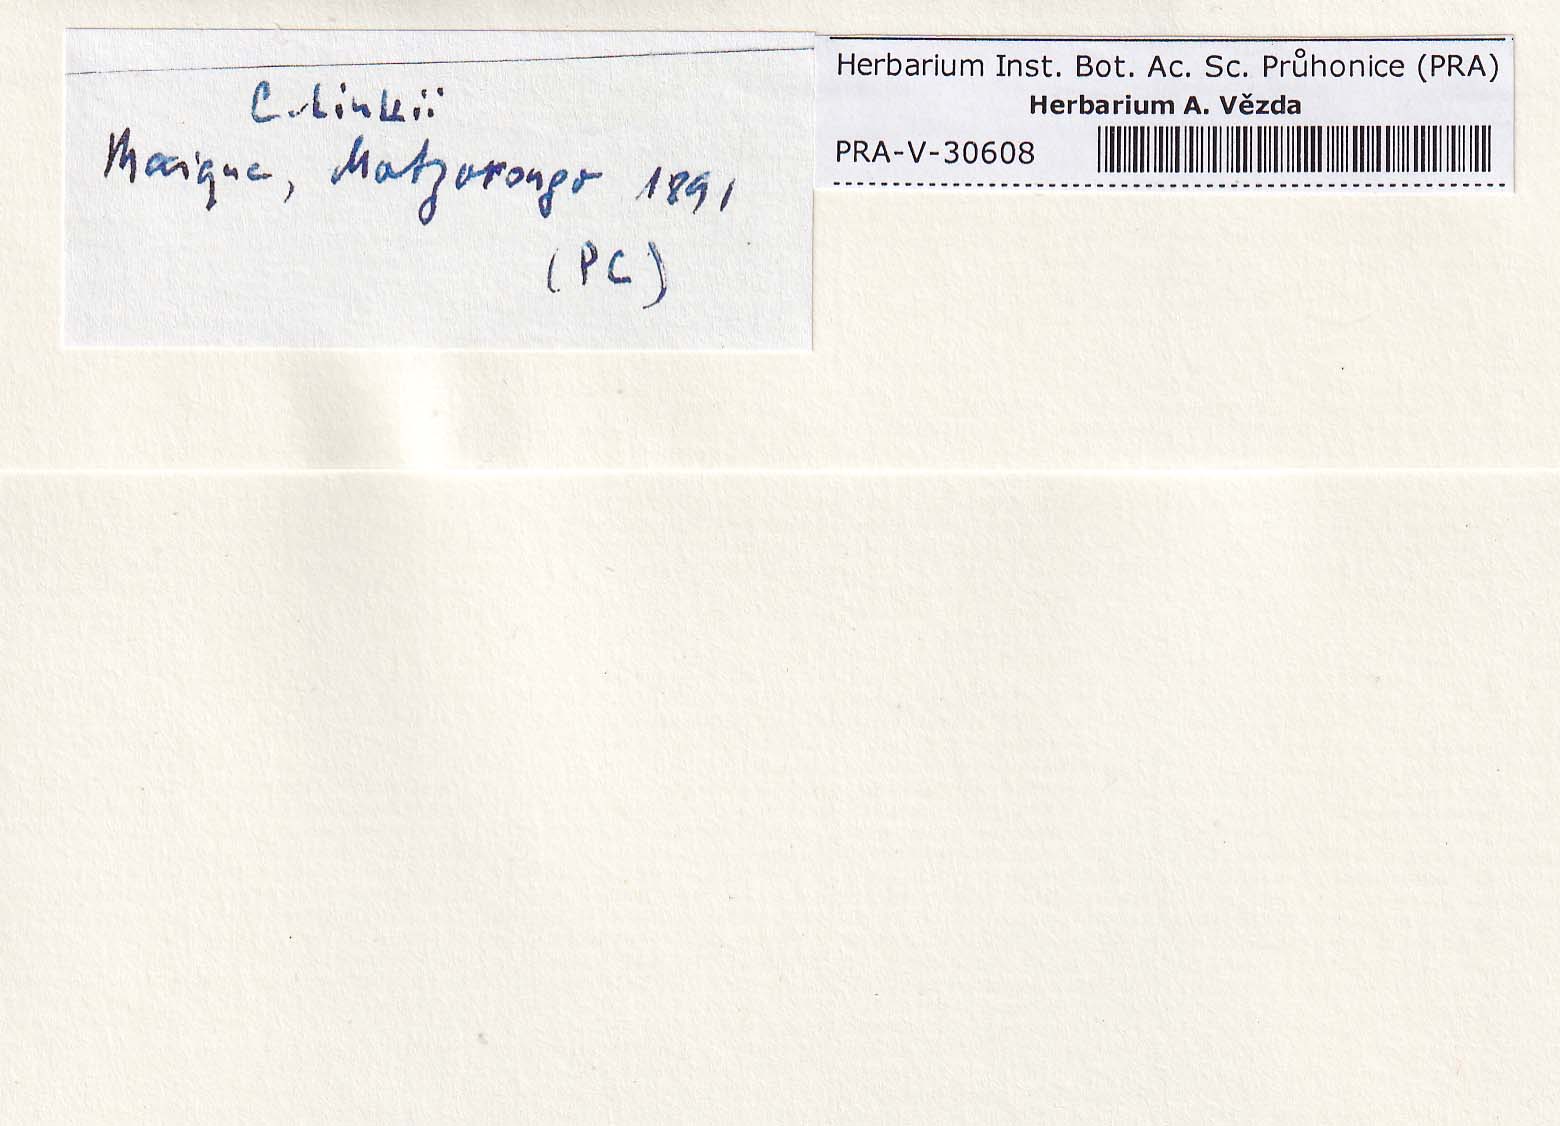 C. Linkii
Mexique, Motzorongo 1891
(PC)
Herbarium Inst. Bot. Ac. Sc. Průhonice (PRA)
Herbarium A. Vězda
PRA-V-30608